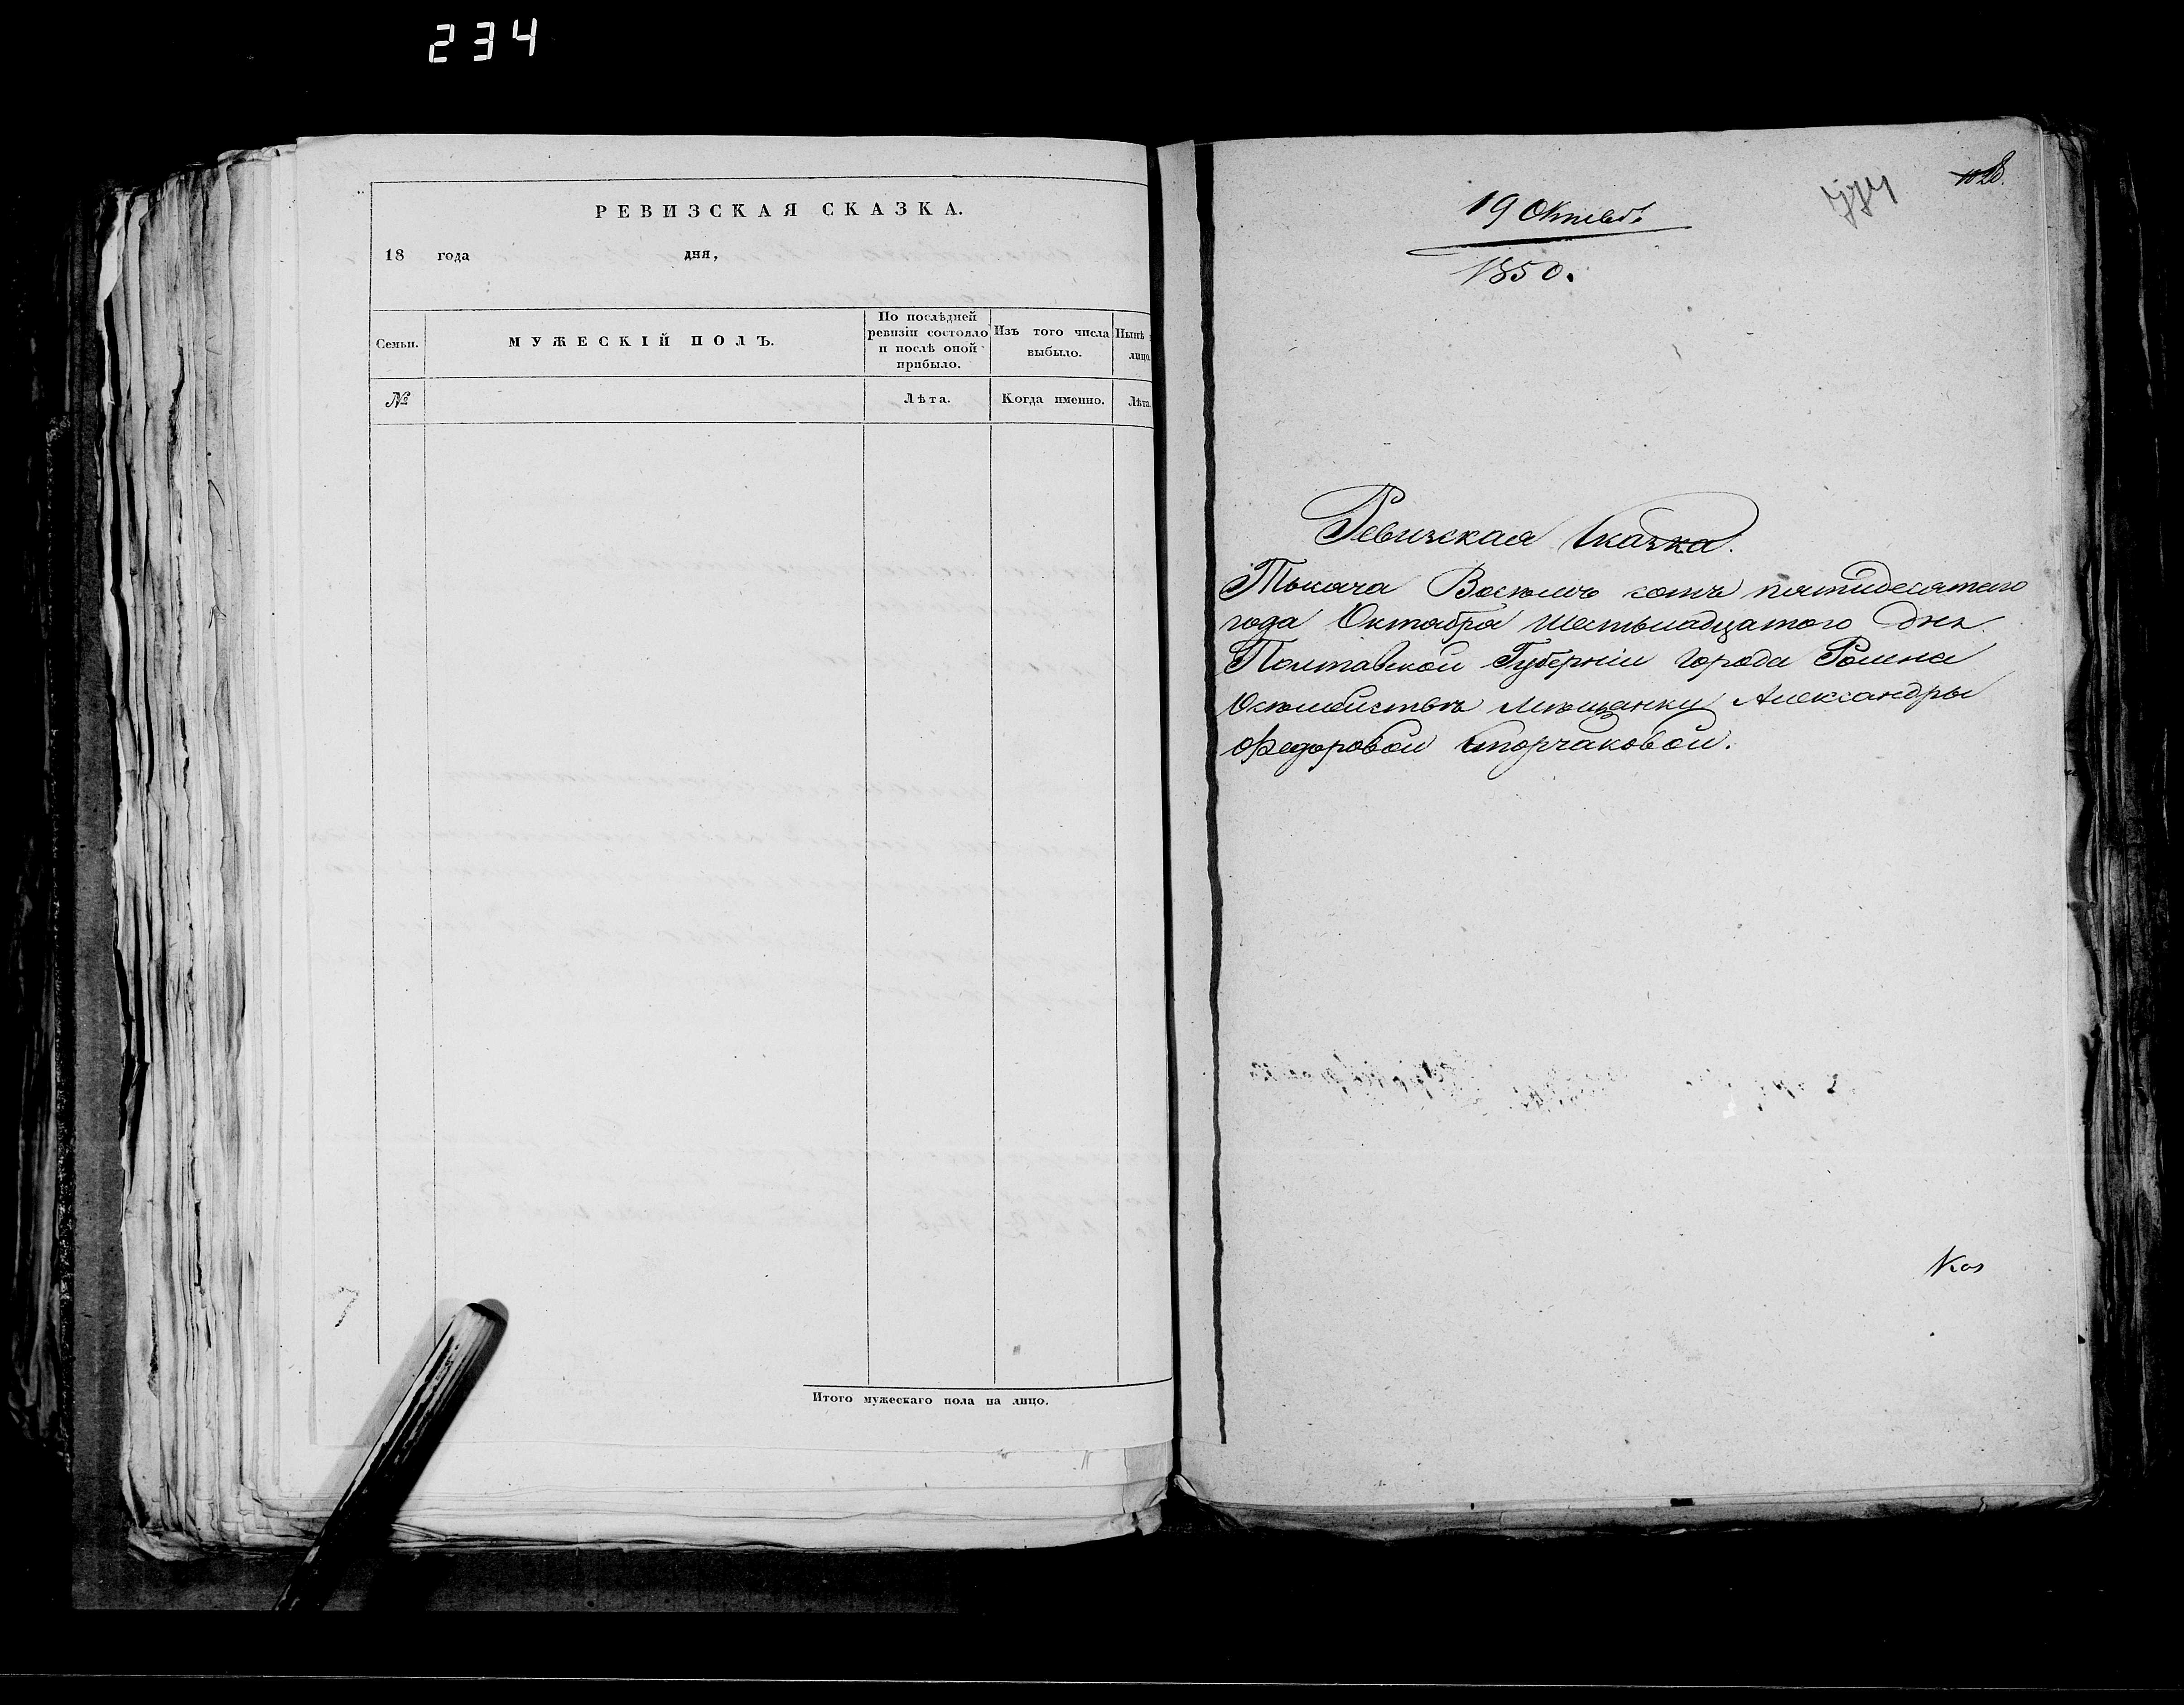 234
РЕВИЗСКАЯ СКАЗКА.
18 года дня,
Семьи.
МУЖЕСКІЙ ПОЛЪ.
По послѣдней
ревизіи состояло
и послѣ оной
прибыло.
Изъ того числа
выбыло.
Нынѣ
лицо.
№
Лѣта.
Когда именно.
Лѣта.
Итого мужескаго пола на лицо.
19 Октяб.
1850.
Ревизская Сказка.
Тысяча Восемь сотъ пятидесятого
года Октября Шестьнадцатого дня
Полтавской Губерніи города Ромна
мещанки Александры
Федоровой Сторчаковой.